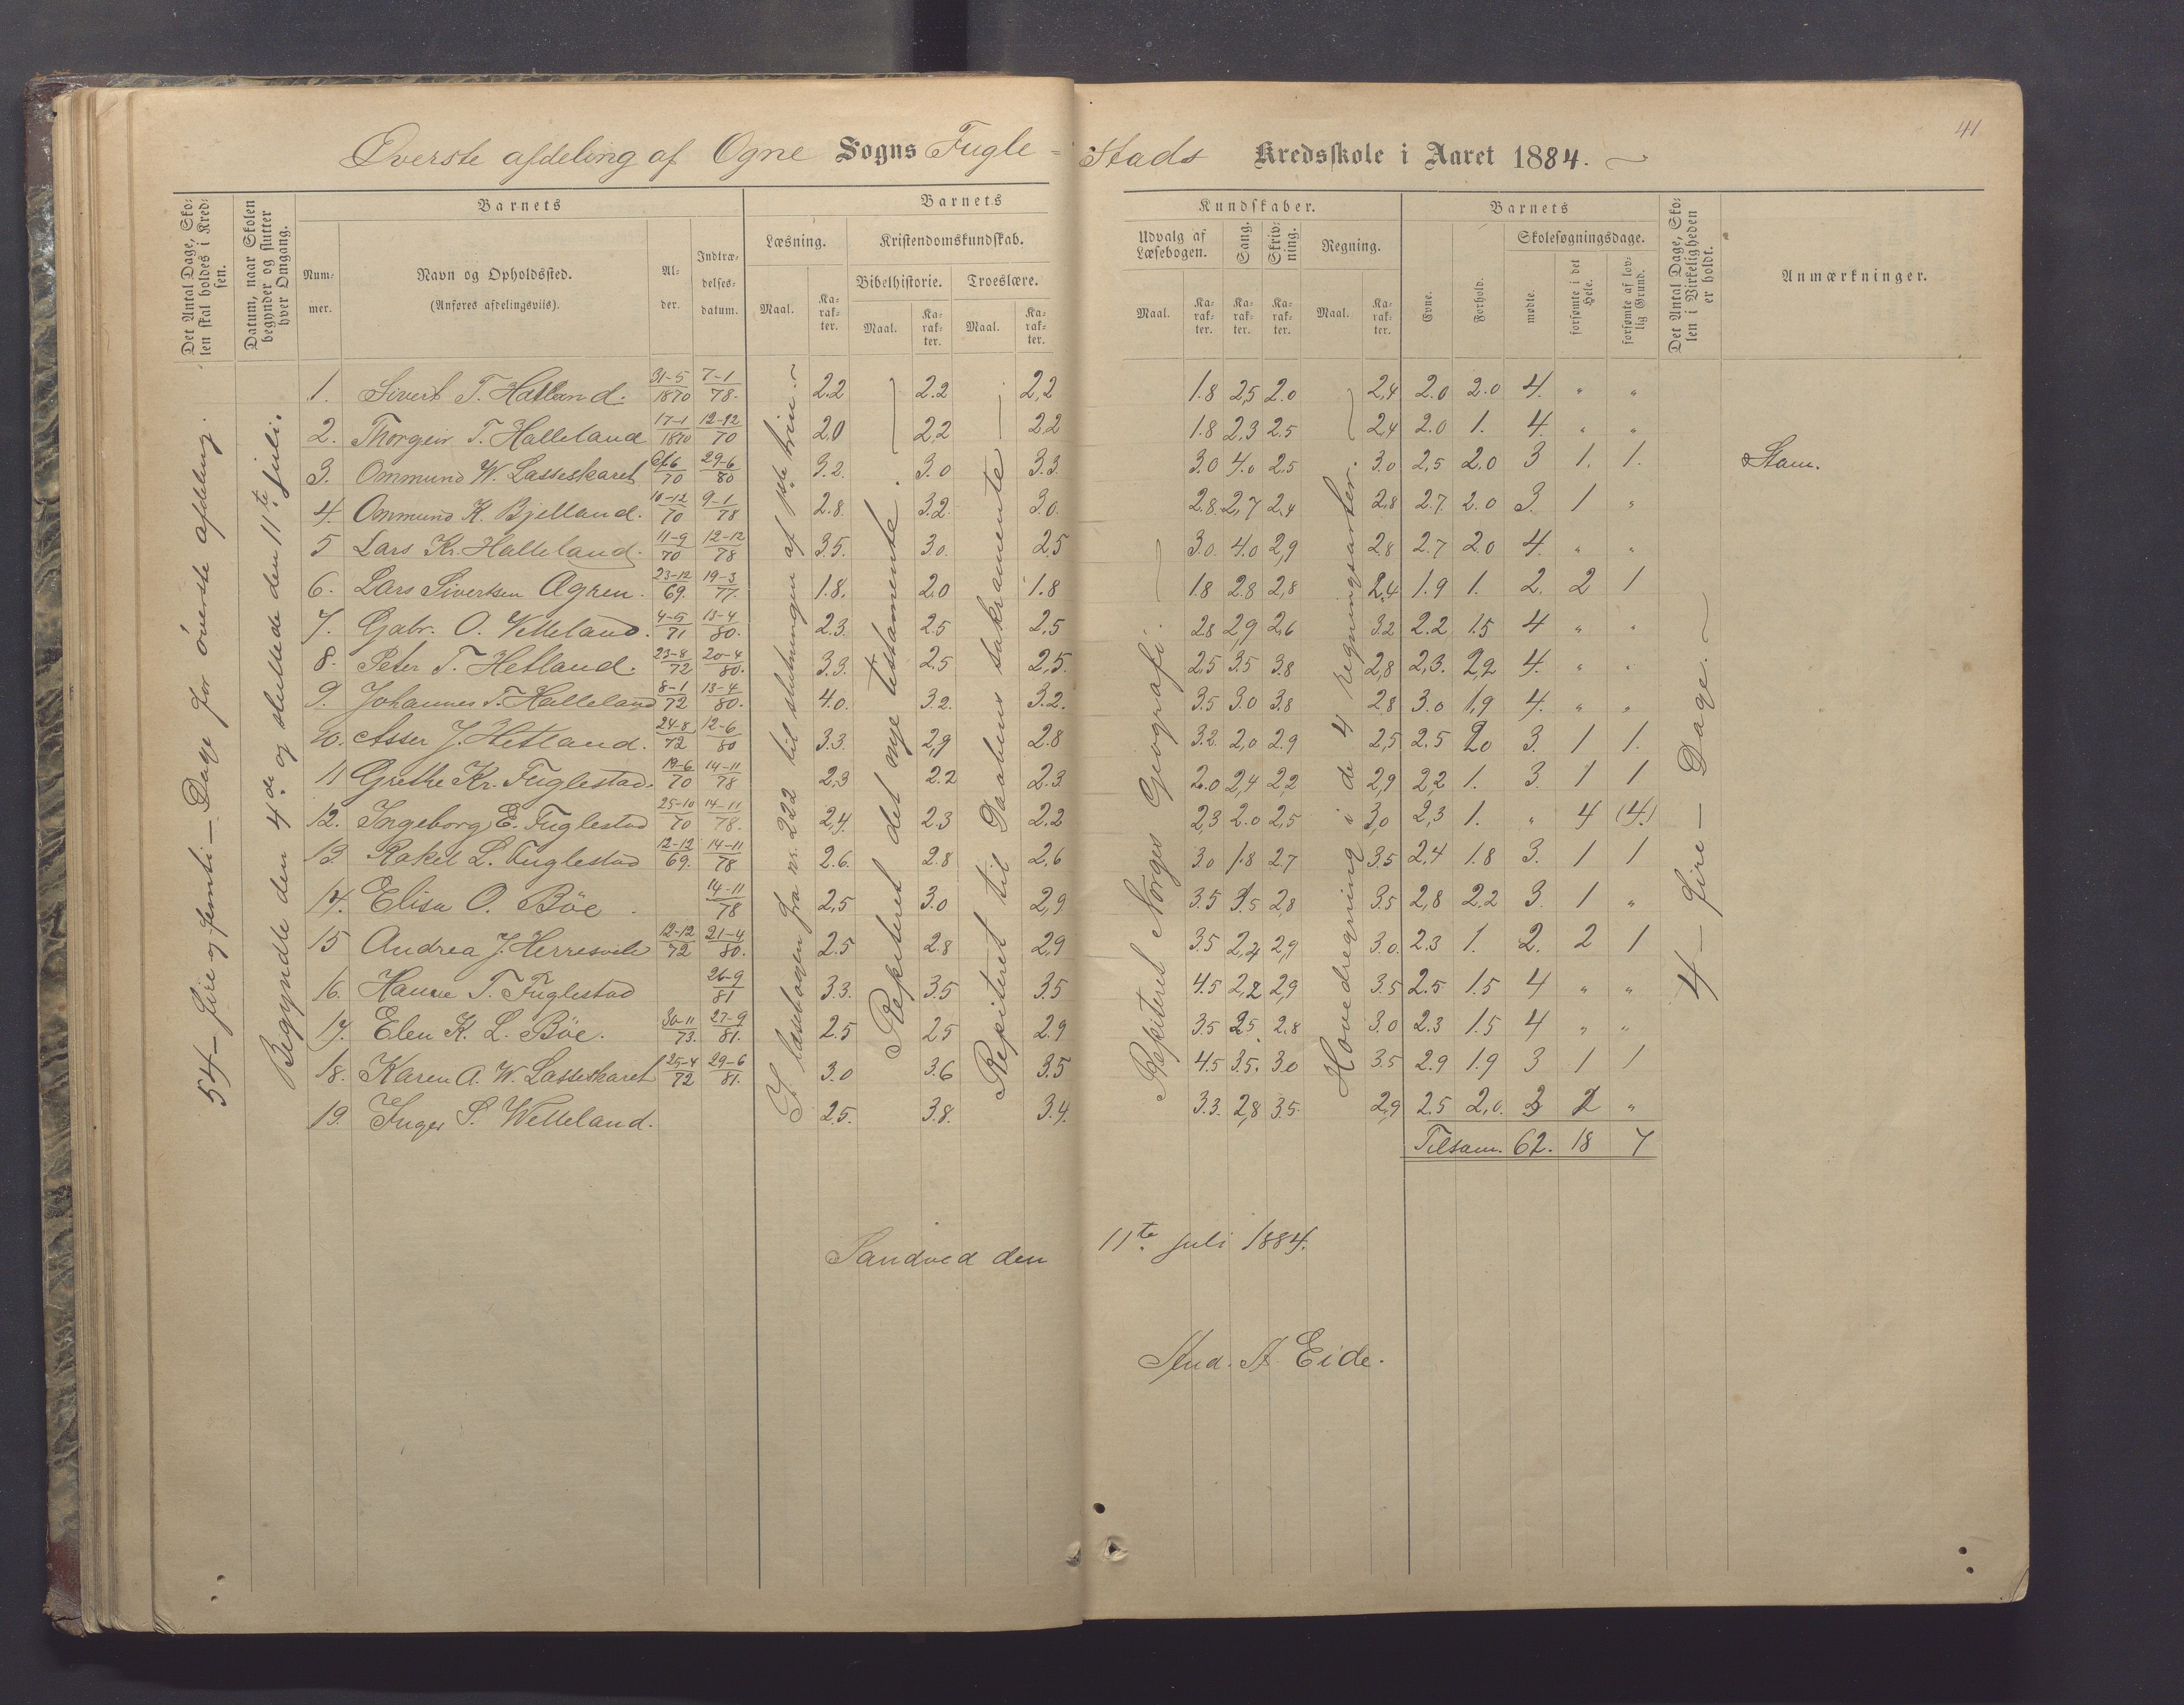 41
Øverste afdeling af Ogne Sogns Fugle= Stads Kredsskole i Aaret 1884.
Det Antal Dage, Sko-
len skal holdes i Kred-
sen.
Datum, naar Skolen
begynder og slutter
hver Omgang.
Barnets
Num-
mer.
Navn og Opholdssted.
(Anføres afdelingsviis).
Al-
der.
Indtræ-
delses-
datum.
Barnets Kundskaber.
Læsning.
Maal. Ka-rak-ter.
Kristendomskundskab.
Bibelhistorie. Troeslære.
Maal. Ka-rak-ter. Maal. Ka-rak-ter.
Udvalg af Læsebogen.
Maal. Ka-rak-ter.
Sang. Ka-rak-ter.
Skriv-ning. Ka-rak-ter.
Regning.
Maal. Ka-rak-ter.
Barnets
Evne.
Forhold.
Skolesøgningsdage.
mødte.
forsømte i det Hele.
forsømte af lov-lig Grund.
Det Antal Dage, Sko-
len i Virkeligheden
er holdt.
Anmærkninger.
54 – fire og femti – Dage for øverste afdeling.
Begyndte den 4de og sluttede den 11te juli.
I læsebogen fra nr. 222 til slutningen af trin.
Repiteret det nye testamente.
Repiteret til Daabens sakramente
Repiteret Norges Geografi.
Hovedregning i de 4 regningsarter.
4 – fire – Dage.
1. Sivert T. Hetland. 31-5 1870 7-1 78. 2.2 2.2 2,2 1.8 2,5 2.0 2,4 2.0 2.0 4. " "
2. Thorgeir T. Halleland 17-1 1870 12-12 70 2,0 2,2 2,2 1.8 2,3 2.5 2,4 2.0 1. 4. " "
3. Ommund W. Lasseskaret 70 29-6 80 3.2. 3.0 3.3. 3.0 4.0 2,5 3.0 2,5 2.0 3 1. 1. Stam.
4. Ommund K. Bjelland. 10-12 70 9-1 78 2.8. 3.2. 3.0. 2.8. 2,7 2,4 2,8 2.7. 2.0 3. 1 "
5 Lars Kr. Halleland. 11-9 70 12-12 78 3.5. 3.0. 2.5 3.0. 4.0 2,9 2.8 2.7 2.0 4. " "
6. Lars Sivertsen Ogren. 23-12 69. 19-3 77. 1.8. 2.0 1.8 1.8 2.8 2,8 2.4 1.9 1. 2. 2 1
7. Gabr. O. Vetteland. 4-5 71 13-4 80. 2.3. 2.5 2,5 2.8 2,9 2,6 3.2 2.2 1.5 4 " "
8. Peter T. Hetland. 23-8 72 20-4 80. 3.3. 2.5 2,5. 2,5 3.5 3.8 2,8 2,3. 2,2 4. " "
9. Johannes T. Halleland 8-1 72 13-4 80. 4.0. 3.2. 3.2. 3.5 3.0 3.8 2.8 3.0 1,9 4. " "
10. Asser J. Hetland. 24-8 72 12-6 80 3.3. 2,9 2.8 3.2. 2,0 2.9 2,5 2.5 2.0 3. 1 1.
11 Grethe Kr. Fuglestad. 19-6 70 14-11 78 2,3 2.2 2.3. 2.0 2,4 2,2 2,9 2,2 1. 3. 1 1
12. Ingeborg E. Fuglestad 25-10 70 14-11 78. 2,4. 2.3 2.2 2,3 2.0 2,5 3,0 2,3 1. " 4 (4.)
13. Rakel L. Fuglestad 12-12 69. 14-11 78 2.6. 2.8 2,6 3.0 1.8 2.7 3.5 2,4 1.8 3. 1 1
14. Elisa O. Böe. 14-11 78 2,5 3.0 2,9 3.5 3.5 2,8 3.5 2,8 2.2 3. 1 "
15 Andrea J. Herresvele 12-12 72 21-4 80. 2.5 2.8 2,9 3.5 2,4 2,9 3.0. 2.3 1. 2. 2 1
16. Hanne T. Fuglestad 26-9 81 3.3. 3.5 3.5 4.5 2,2 2,9 3.5 2.5 1.5 4 " "
17. Elen K. L. Böe. 30-11 73. 27-9 81. 2.5 2.5 2.9 3.5 2.5 2.8 3.0 2.3 1.5 4 " "
18. Karen A. W. Lasseskaret 25-4 72 29-6 81. 3.0 3.6 3.5 4.5 3.5. 3.0 3.5 2.9 1.9 3 1 1
19. Inger S. Wetteland. 2.5. 3.8. 3.4. 3.3. 2,8 3.5. 2,9 2.5 2,0. 3 2 "
Tilsam. 62. 18 7
Sandved den 11te juli 1884.
A. Eide.